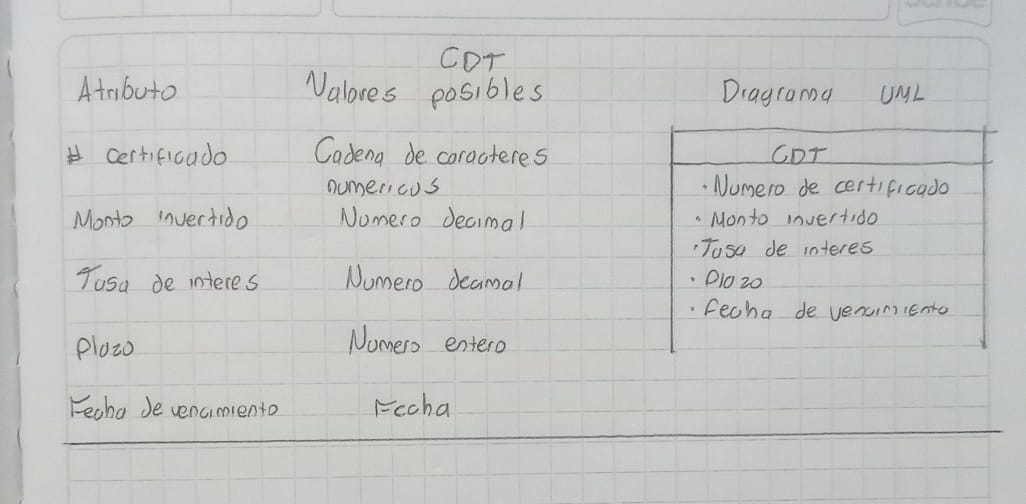 CDT
Atributo Valores posibles Diagrama UML
# certificado Cadena de caracteres
numericos
Monto invertido Numero decimal
Tasa de interes Numero decimal
Plazo Numero entero
Fecha de vencimiento Fecha
CDT
• Numero de certificado
• Monto invertido
• Tasa de interes
• Plazo
• fecha de vencimiento